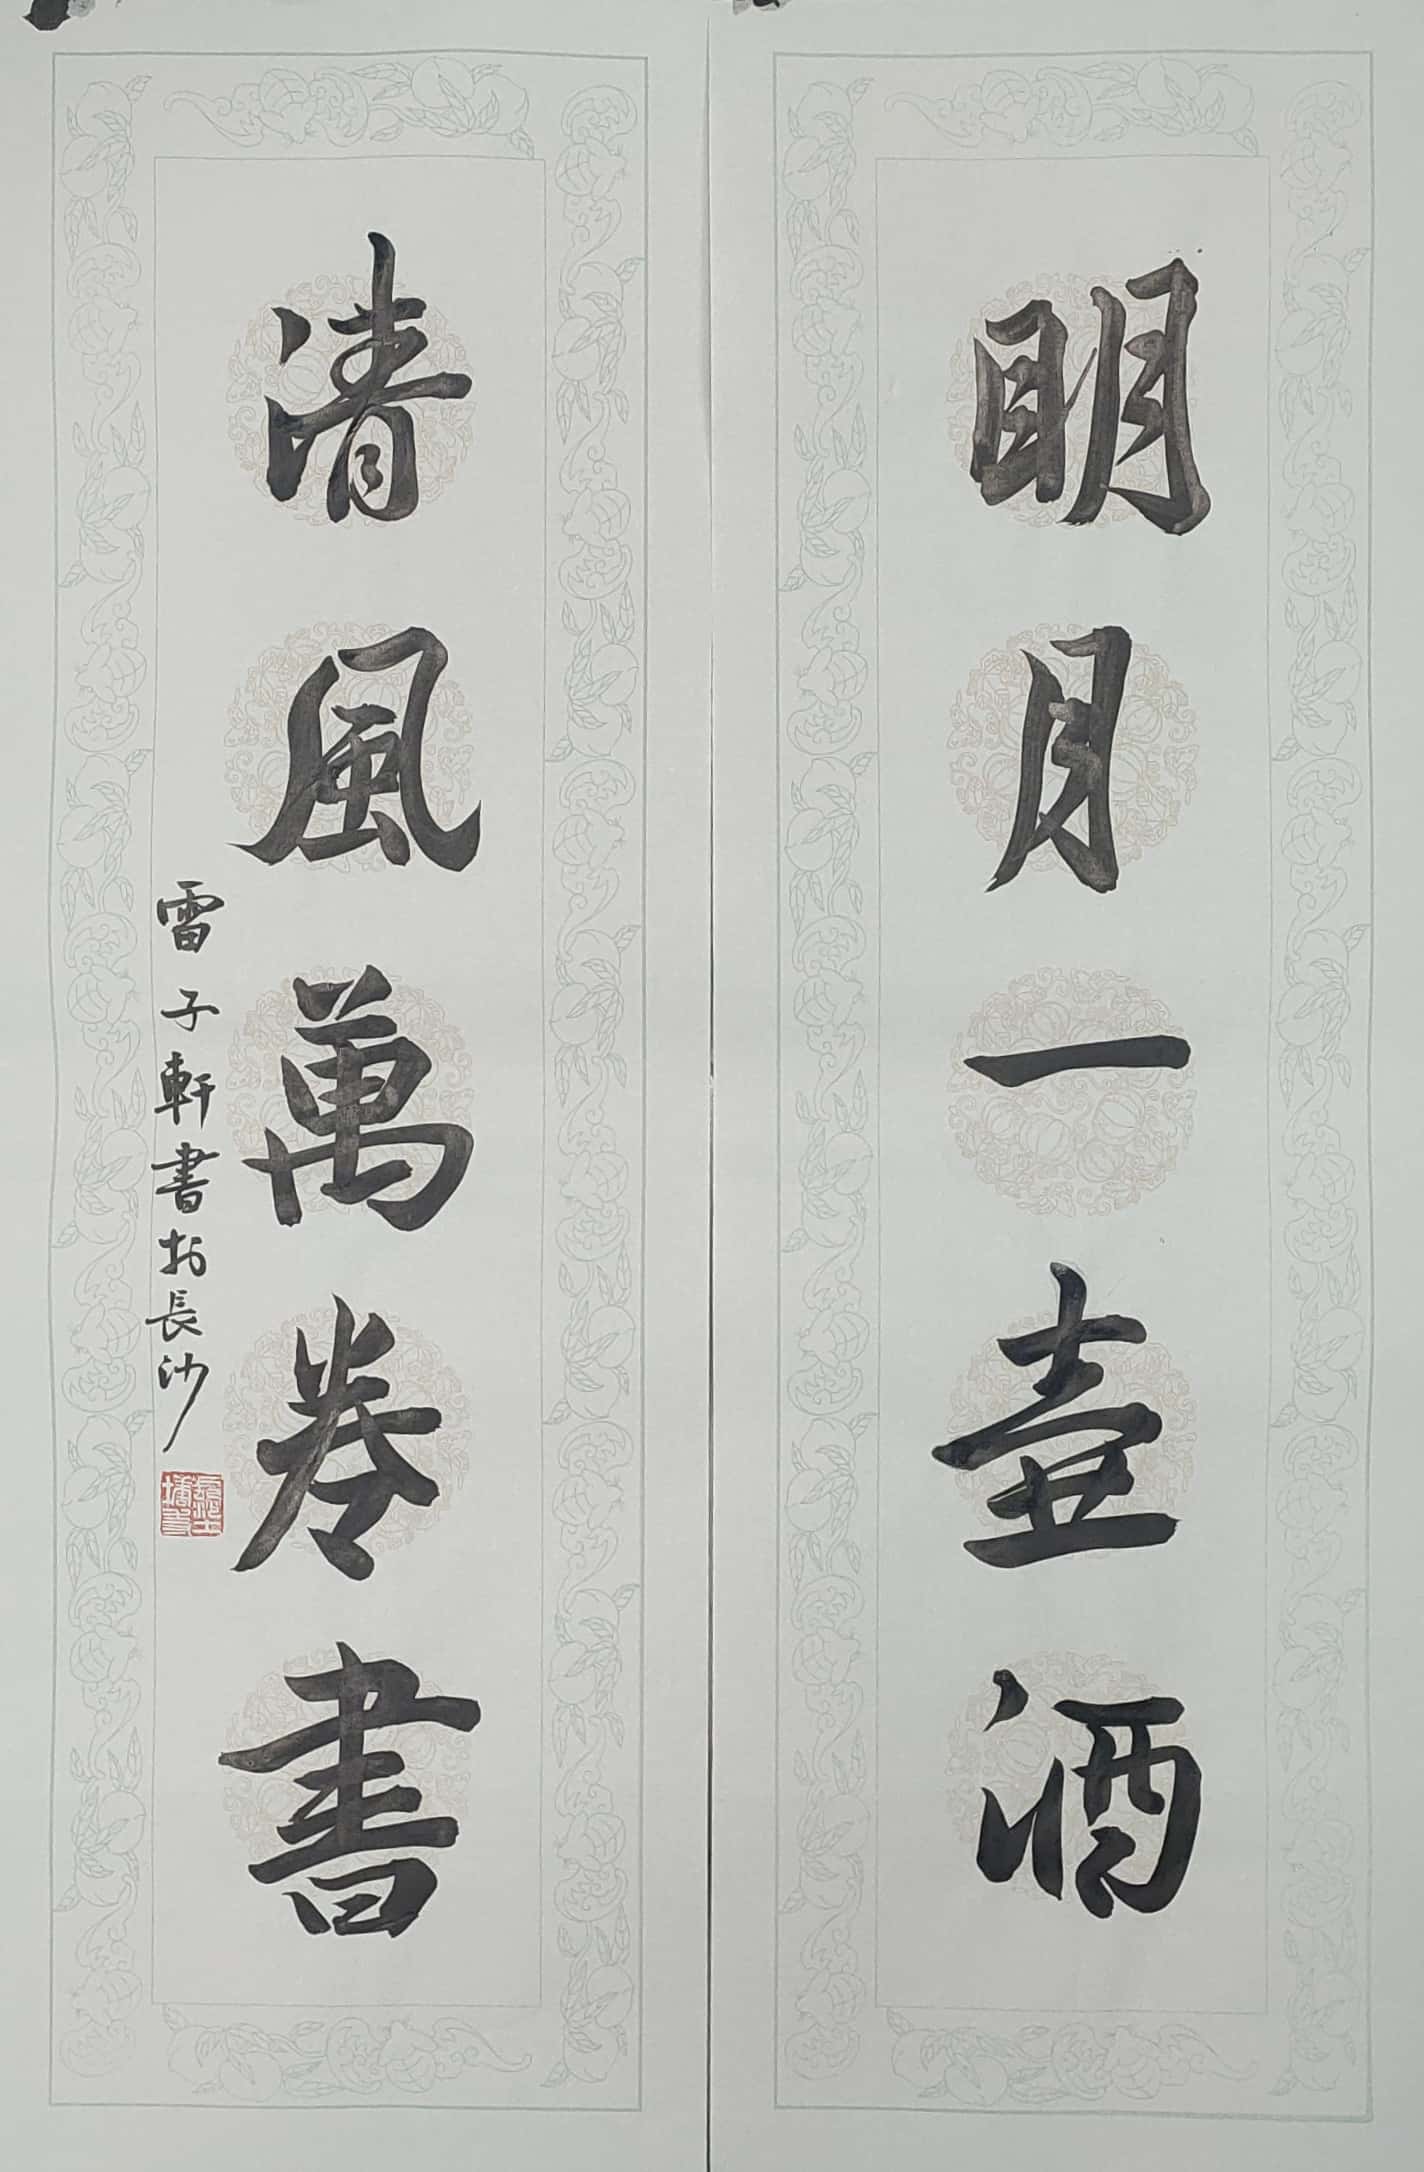 明月一壺酒
清風萬卷書
雷子軒書於長沙